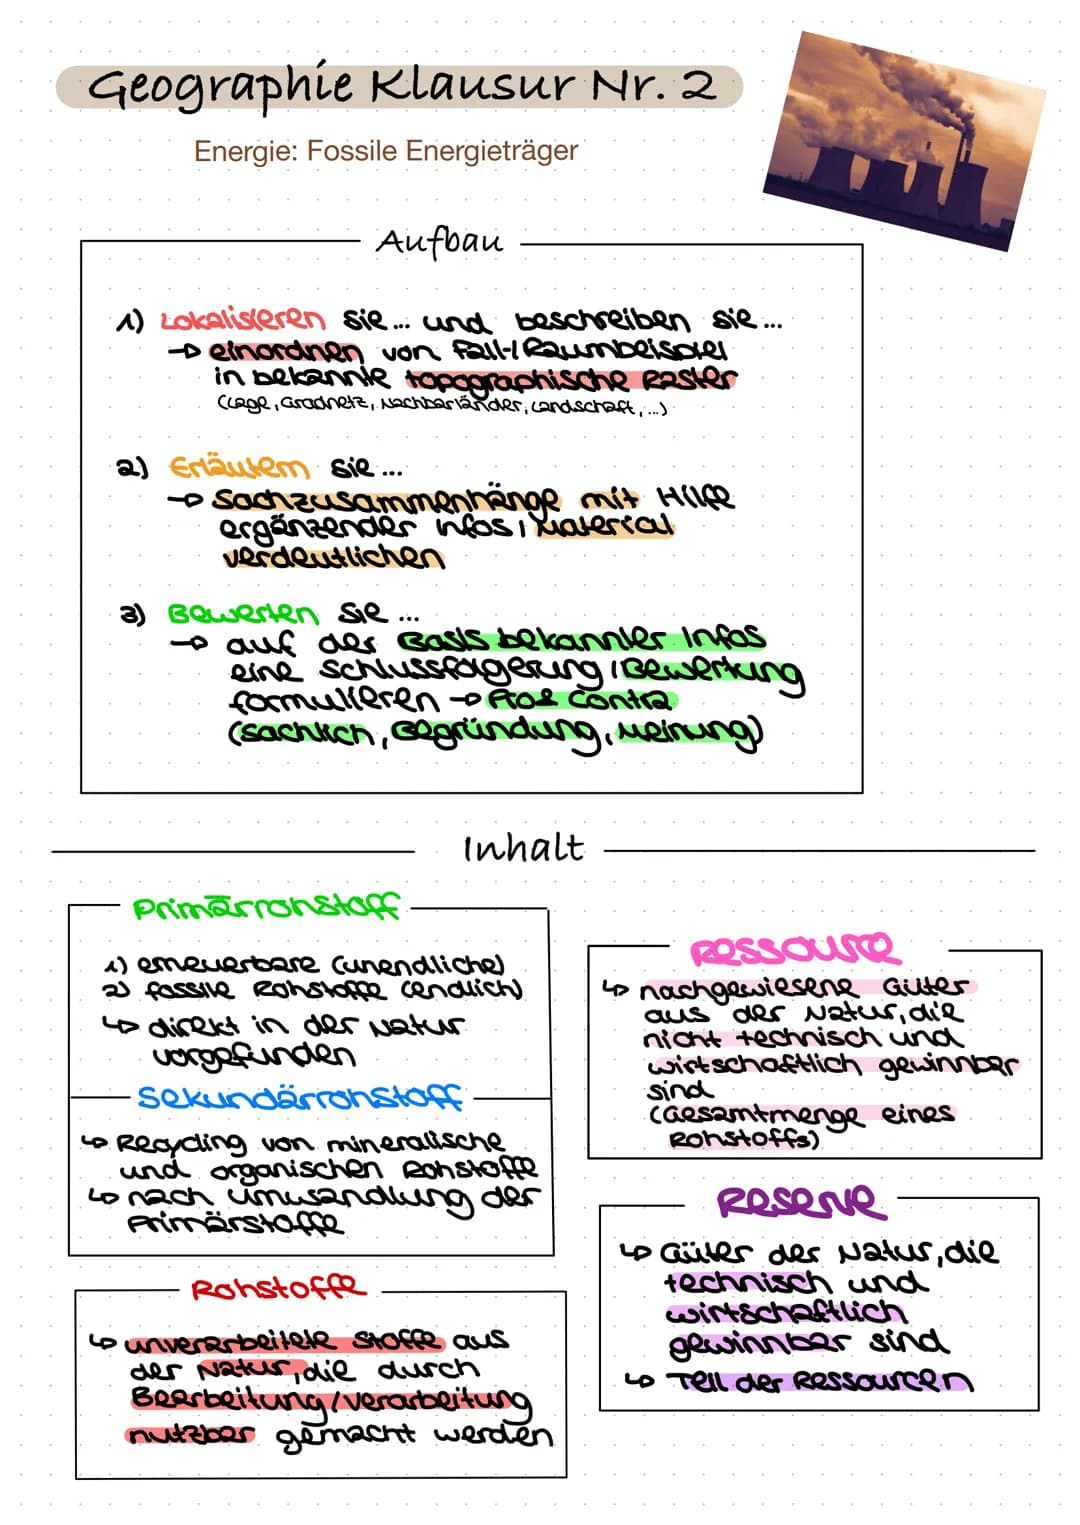 Geographie Klausur Nr. 2
Energie: Fossile Energieträger
Aufbau
1) Lokalisieren Sie... und beschreiben Sie...
→ einordnen von Fall-/Raumbeispiel
in bekannte topographische Raster
(Lage, Gradnetz, Nachbarländer, Landschaft, ...)
2) Erläutern Sie...
→ Sachzusammenhänge mit Hilfe
ergänzender Infos / Material
verdeutlichen
3) Bewerten Sie ...
→ auf der Basis bekannter Infos
eine Schlussfolgerung / Bewertung
formulieren → Pro & Contra
(sachlich, Begründung, Meinung)
Inhalt
Primärrohstoff
1) erneuerbare (unendliche)
2) fossile Rohstoffe (endlich)
↳ direkt in der Natur
vorgefunden
Sekundärrohstoff
↳ Recycling von mineralische
und organischen Rohstoffe
↳ nach Umwandlung der
Primärstoffe
Rohstoffe
↳ unverarbeitete Stoffe aus
der Natur, die durch
Bearbeitung/Verarbeitung
nutzbar gemacht werden
Ressource
↳ nachgewiesene Güter
aus der Natur, die
nicht technisch und
wirtschaftlich gewinnbar
sind
(Gesamtmenge eines
Rohstoffs)
Reserve
↳ Güter der Natur, die
technisch und
wirtschaftlich
gewinnbar sind
↳ Teil der Ressourcen